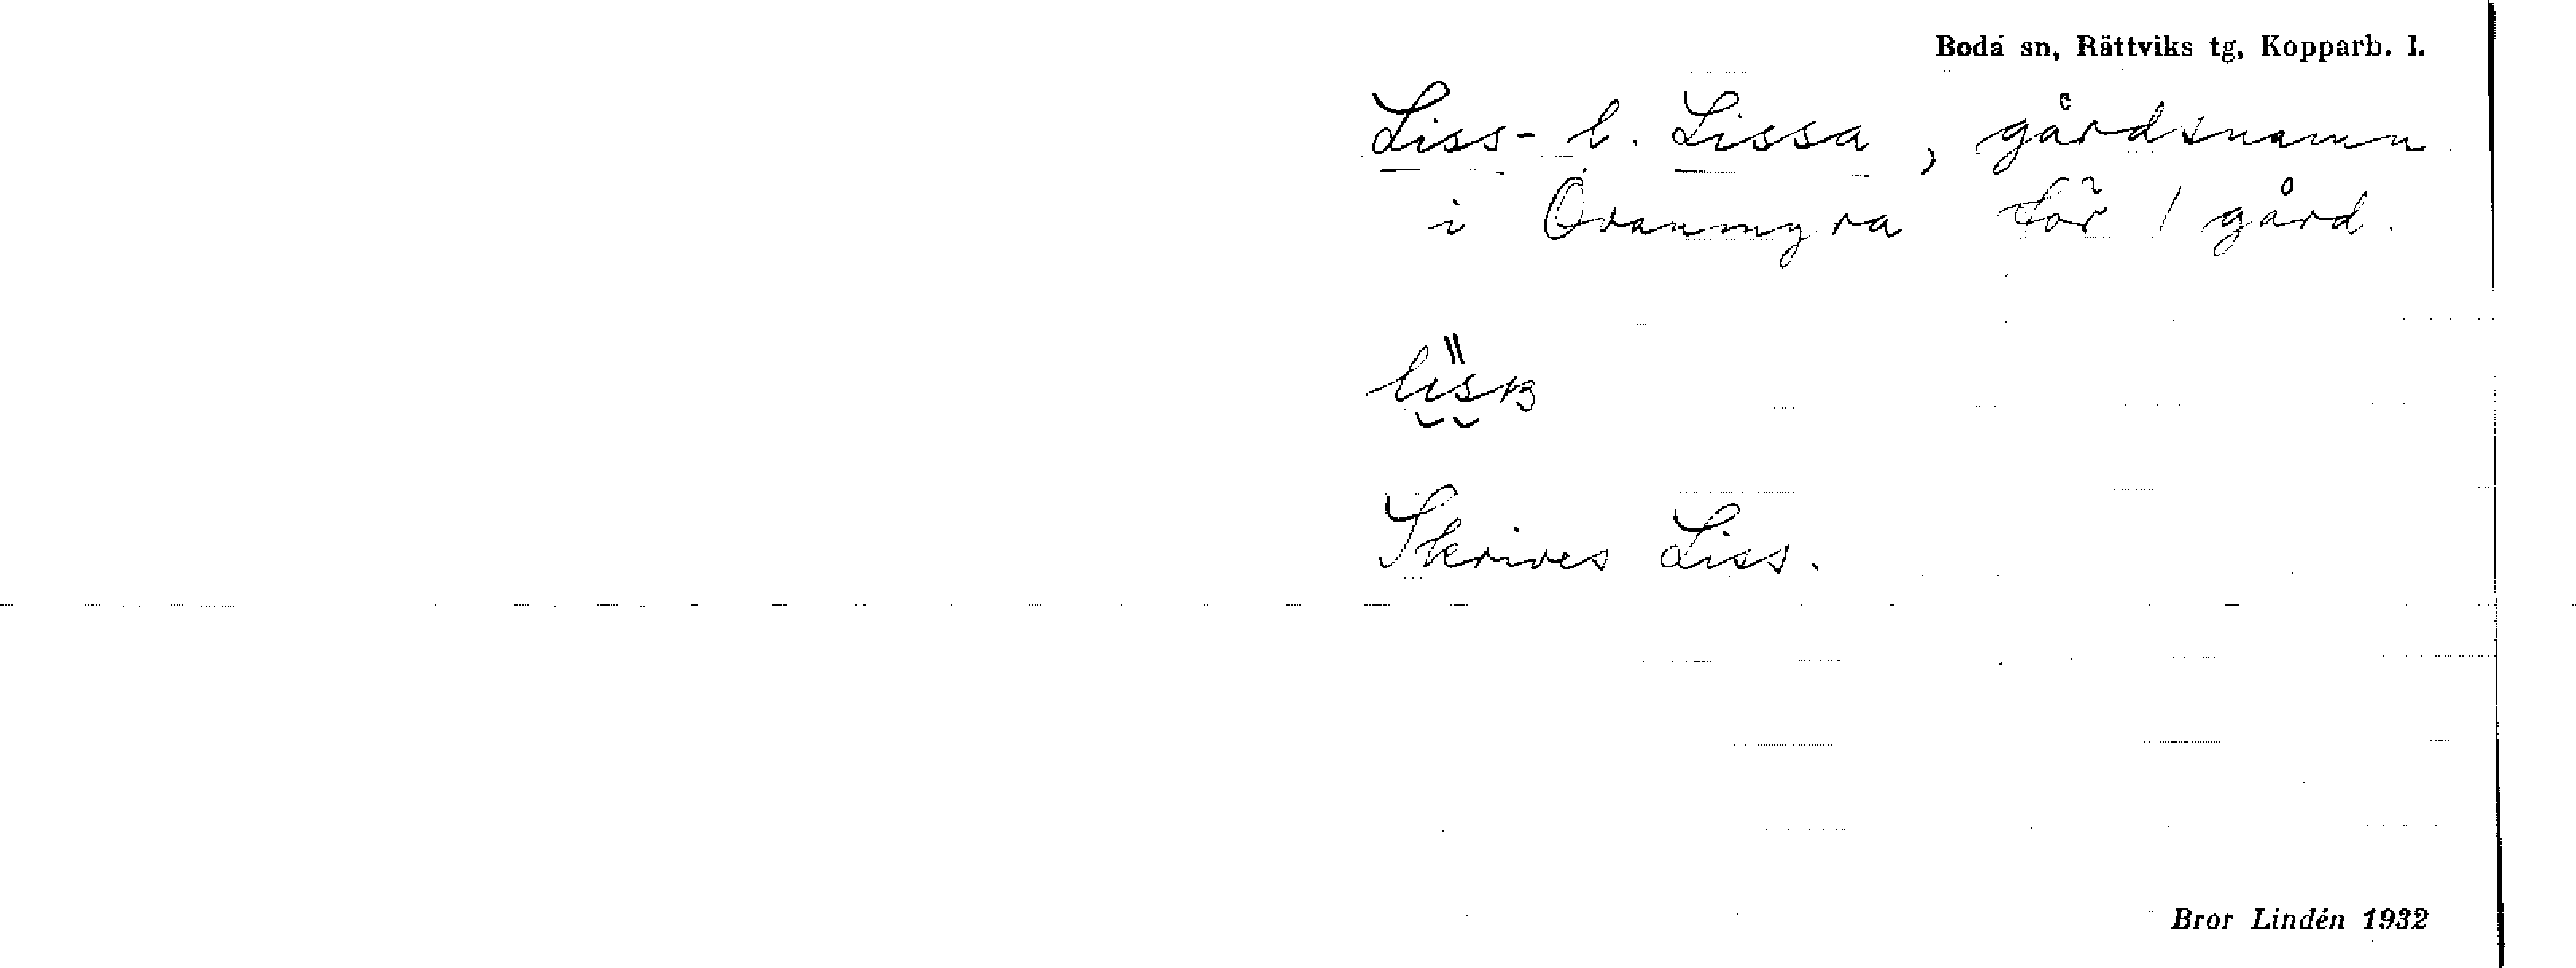 Boda sn, Rättviks tg, Kopparb. l.
Liss- l. Lissa, gårdsnamn
i Ovanmyra för 1 gård.
Skrives Liss.
Bror Lindén 1932